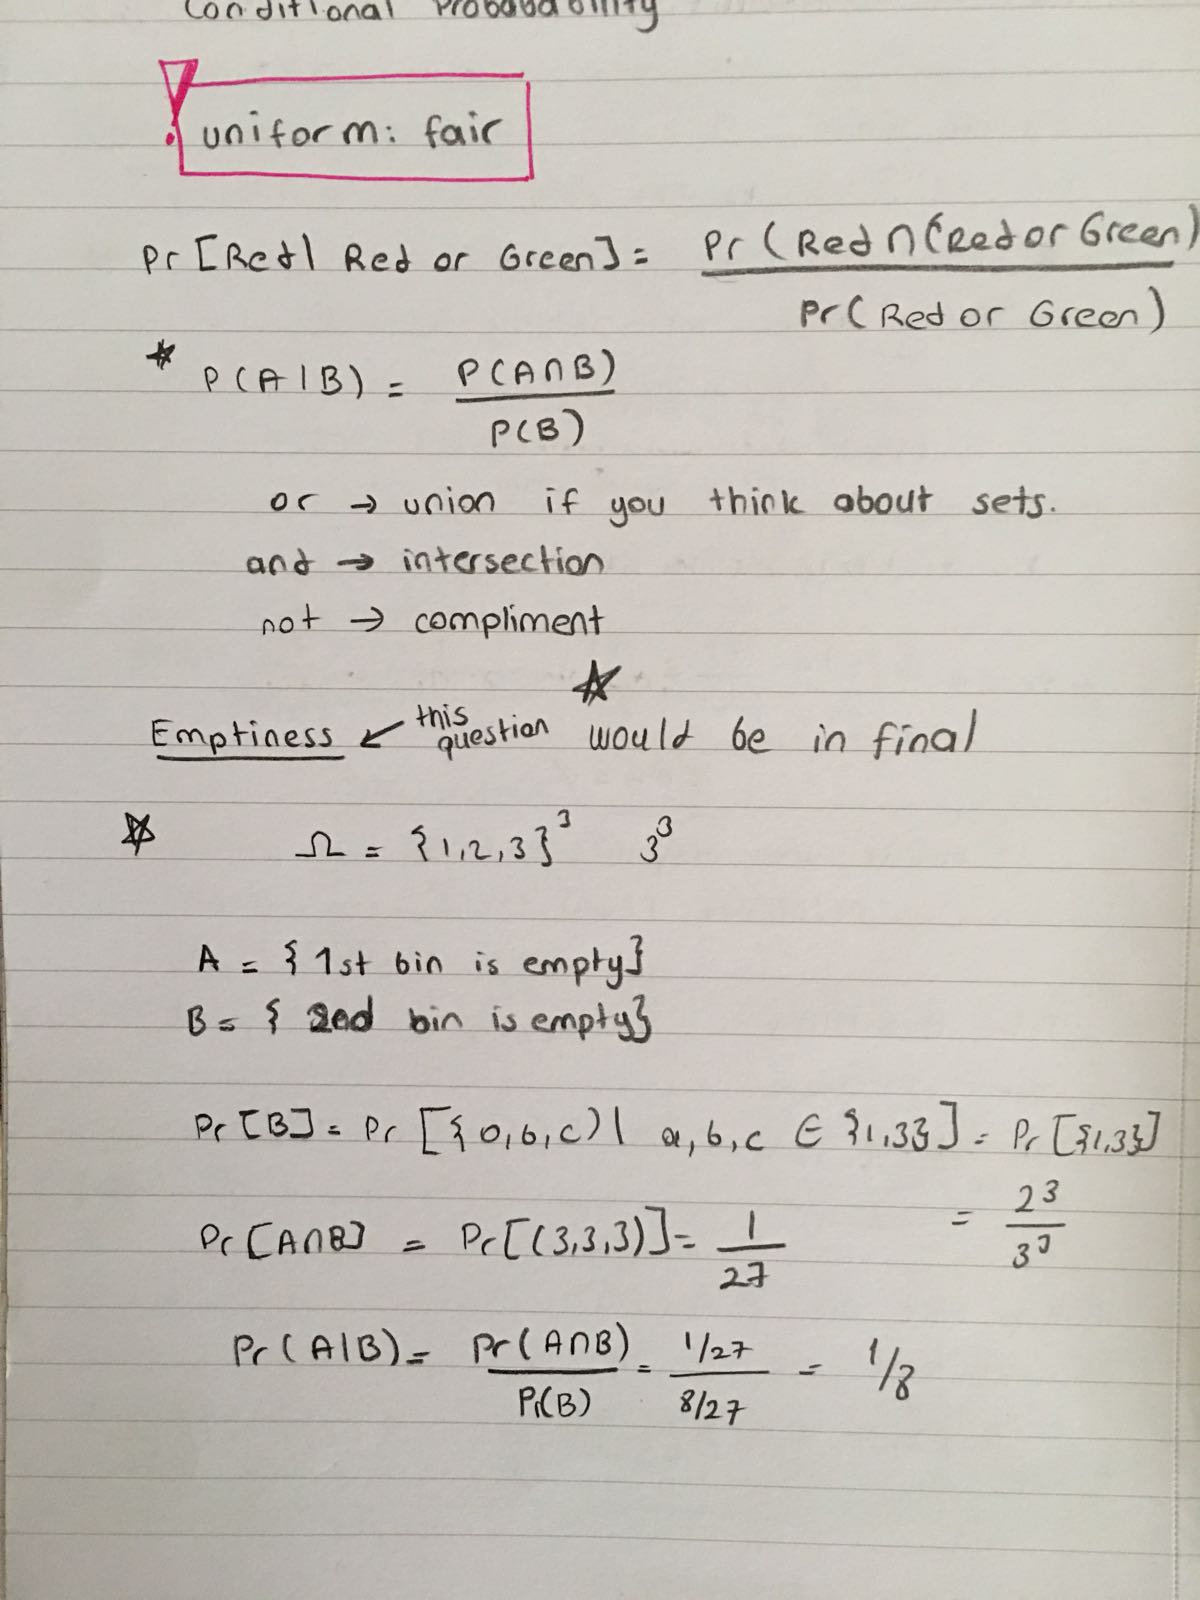 Conditional Probabability
uniform: fair
Pr [Red| Red or Green] = Pr (Red ∩ (Red or Green)
Pr ( Red or Green)
P(A|B) = P(A∩B)
P(B)
or → union if you think about sets.
and → intersection
not → compliment
Emptiness ← this question would be in final
Ω = {1,2,3}³ 3³
A = { 1st bin is empty}
B = { 2nd bin is empty}
Pr [B] = Pr [{a,b,c) | a,b,c ∈ {1,3}] = Pr [{1,3}]
= 2³
3³
Pr [A∩B] = Pr[(3,3,3)] = 1
27
Pr (A|B) = Pr(A∩B) = 1/27 = 1/8
Pr(B) 8/27